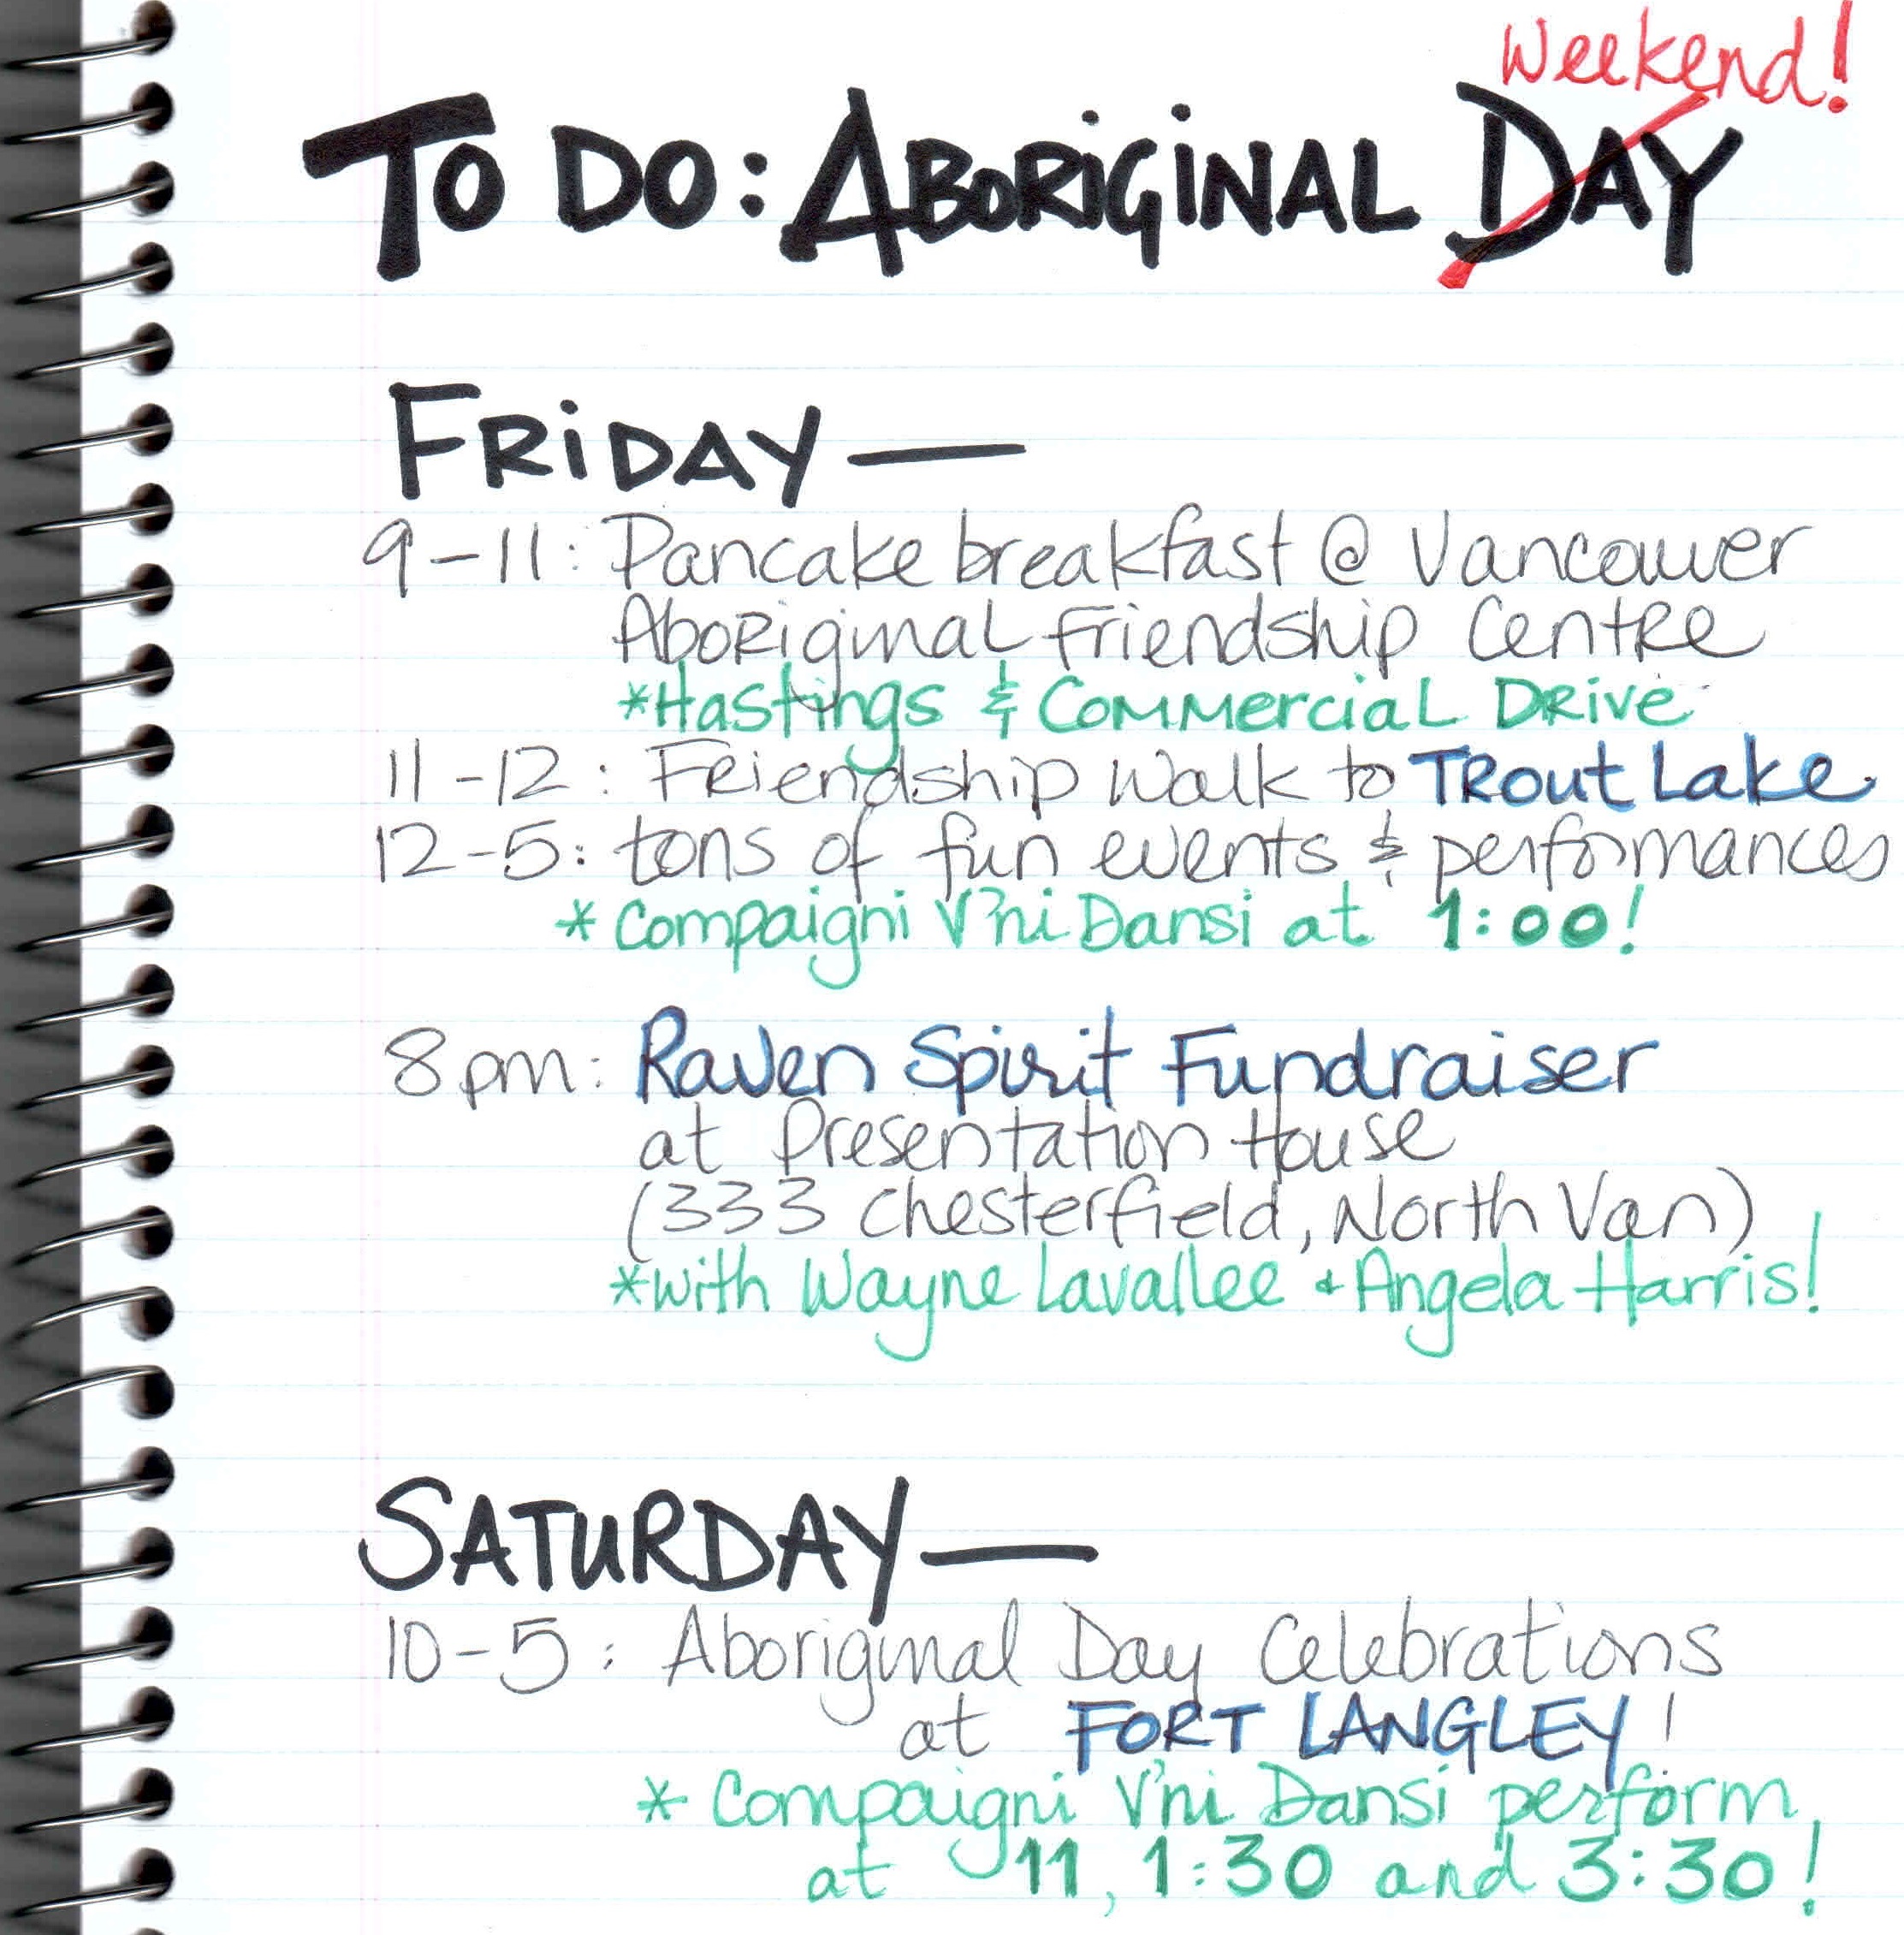 Weekend!
TO DO: ABORIGINAL DAY
FRIDAY—
9-11: Pancake breakfast @ Vancouver
Aboriginal Friendship Centre
*Hastings & Commercial Drive
11-12: Friendship Walk to Trout Lake.
12-5: tons of fun events & performances
* Compaigni V'ni Dansi at 1:00!
8pm: Raven Spirit Fundraiser
at Presentation House
(333 Chesterfield, North Van)
*with Wayne Lavallee + Angela Harris!
SATURDAY—
10-5: Aboriginal Day Celebrations
at FORT LANGLEY!
* Compaigni V'ni Dansi perform
at 11, 1:30 and 3:30!